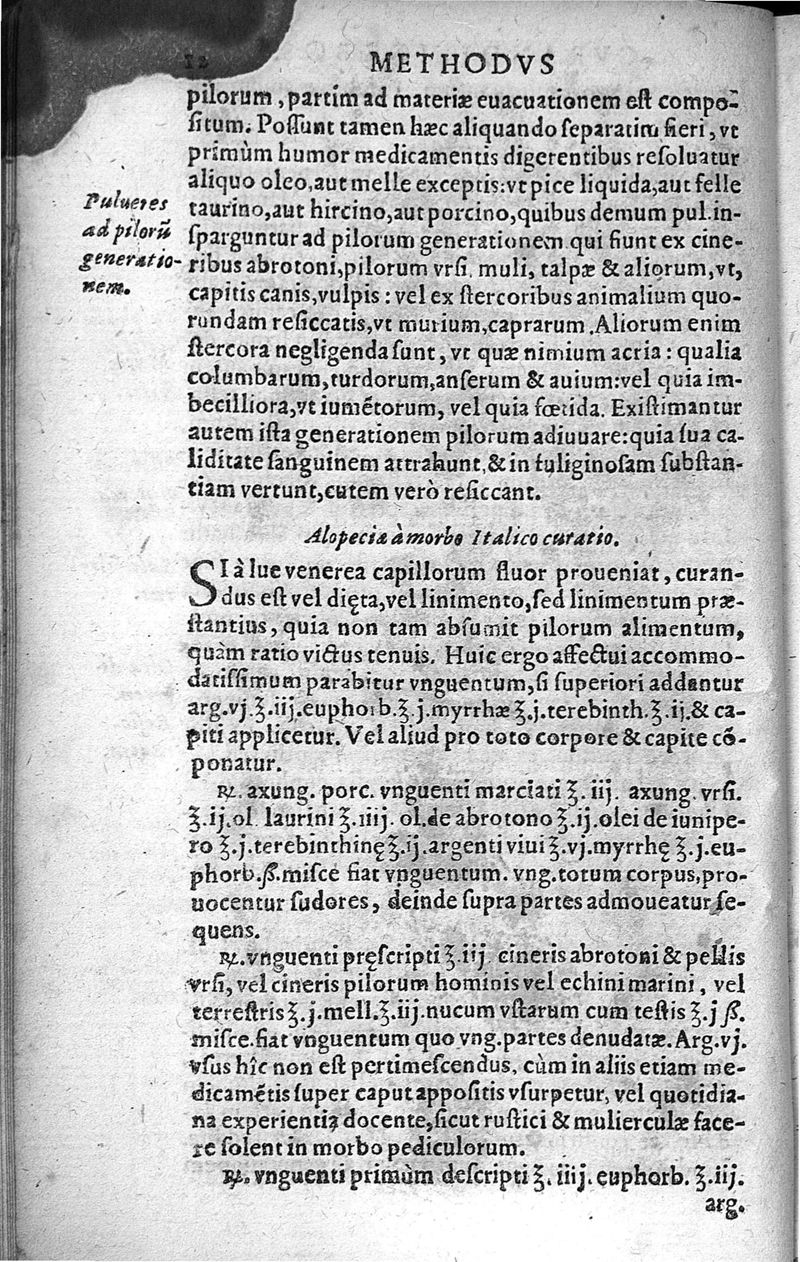 12 METHODVS
pilorum, partim ad materiæ euacuationem est compo-
situm. Possunt tamen hæc aliquando separatim fieri, vt
primùm humor medicamentis digerentibus resoluatur
aliquo oleo, aut melle exceptis: vt pice liquida, aut felle
taurino, aut hircino, aut porcino, quibus demum pul. in-
sparguntur ad pilorum generationem. qui fiunt ex cine-
ribus abrotoni, pilorum vrsi, muli, talpæ & aliorum, vt,
capitis canis, vulpis: vel ex stercoribus animalium quo-
rundam resiccatis, vt murium, caprarum. Aliorum enim
stercora negligenda sunt, vt quæ nimium acria: qualia
columbarum, turdorum, anserum & auium: vel quia im-
becilliora, vt iumẽtorum, vel quia fœtida. Existimantur
autem ista generationem pilorum adiuuare: quia sua ca-
liditate sanguinem attrahunt, & in fuliginosam substan-
tiam vertunt, cutem verò resiccant.
Pulueres
ad pilorũ
generatio-
nem.
Alopecia à morbo Italico curatio.
SI à lue venerea capillorum fluor proueniat, curan-
dus est vel dięta, vel linimento, sed linimentum præ-
stantius, quia non tam absumit pilorum alimentum,
quàm ratio victus tenuis. Huic ergo affectui accommo-
datissimum parabitur vnguentum, si superiori addantur
arg. vj. ʒ. iij. euphorb. ʒ. j. myrrhæ ʒ. j. terebinth. ʒ. ij. & ca-
piti applicetur. Vel aliud pro toto corpore & capite cõ-
ponatur.
℞. axung. porc. vnguenti marciati ʒ. iij. axung. vrsi.
ʒ. ij. ol. laurini ʒ. iiij. ol. de abrotono ʒ. ij. olei de iunipe-
ro ʒ. j. terebinthinę ʒ. ij. argenti viui ʒ. vj. myrrhę ʒ. j. eu-
phorb. ß. misce fiat vnguentum. vng. totum corpus, pro-
uocentur sudores, deinde supra partes admoueatur se-
quens.
℞. vnguenti pręscripti ʒ. iij. cineris abrotoni & pellis
vrsi, vel cineris pilorum hominis vel echini marini, vel
terrestris ʒ. j. mell. ʒ. iij. nucum vstarum cum testis ʒ. j ß.
misce. fiat vnguentum quo vng. partes denudatæ. Arg. vj.
vsus hîc non est pertimescendus, cùm in aliis etiam me-
dicamẽtis super caput appositis vsurpetur, vel quotidia-
na experientia docente, sicut rustici & mulierculæ face-
re solent in morbo pediculorum.
℞. vnguenti primùm descripti ʒ. iiij. euphorb. ʒ. iij.
arg.